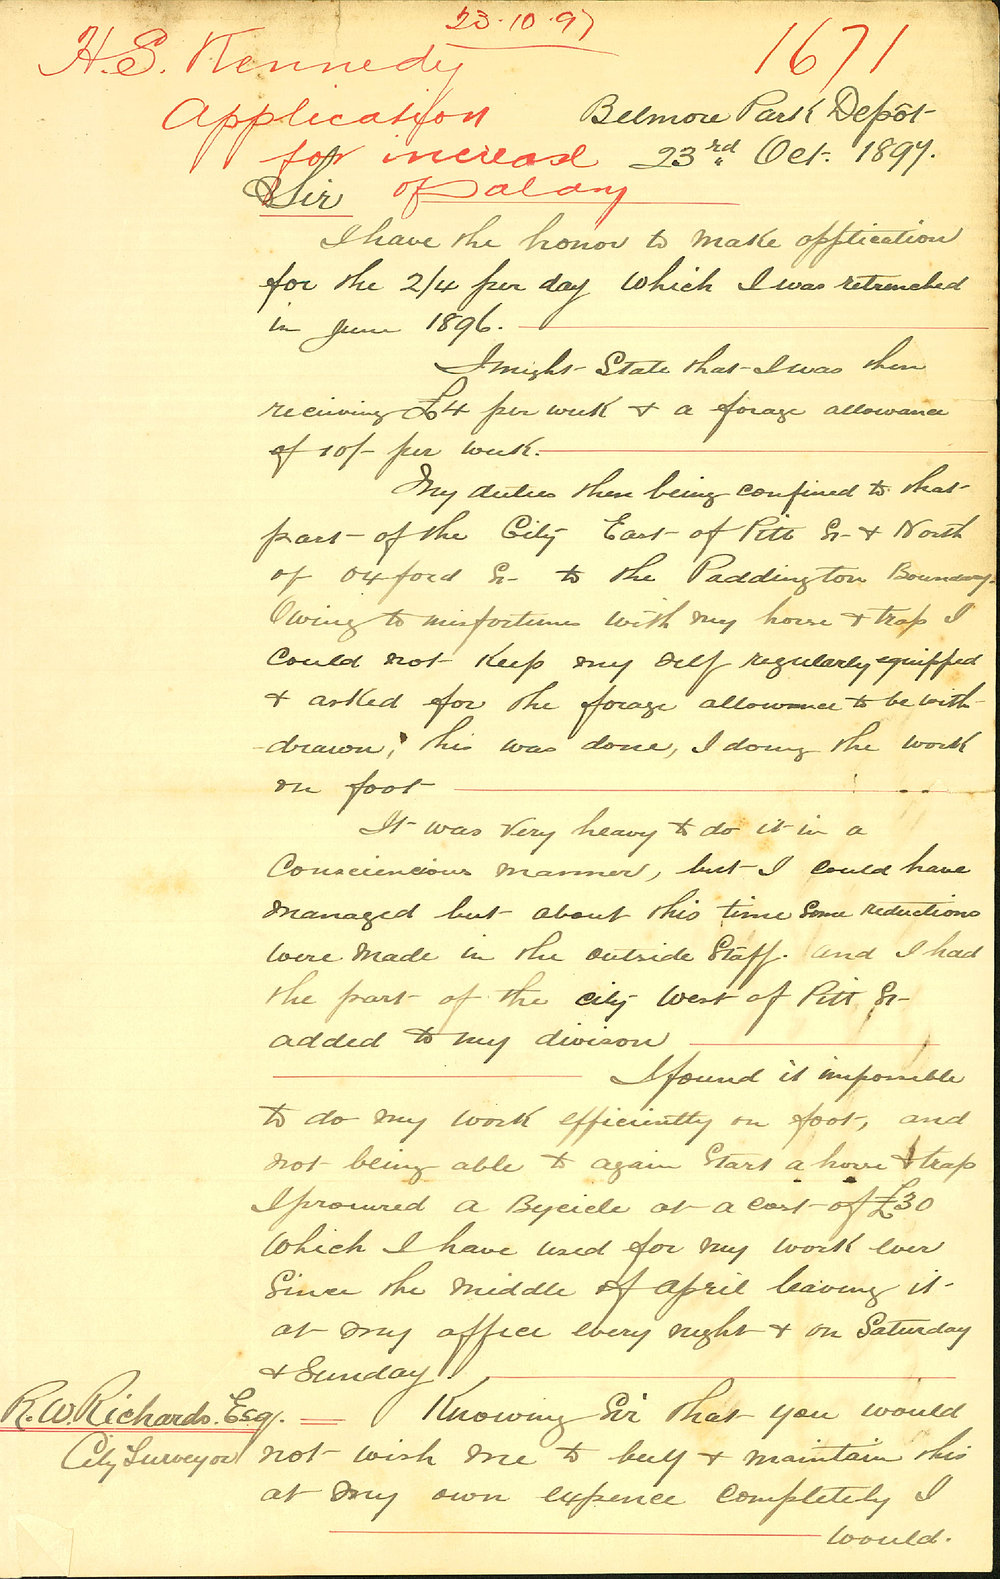 23.10.97
H.S. Kennedy
1671
Application
for increase
of Salary
Belmore Park Depôt
23rd Oct. 1897.
Sir
I have the honor to make application
for the 2/4 per day which I was retrenched
in June 1896.
I might State that I was then
receiving £4 per week & a forage allowance
of 10/- per week.
My duties then being confined to that
part of the City East of Pitt St & North
of Oxford St to the Paddington Boundary.
Owing to misfortunes with my horse & trap I
could not keep my self regularly equipped
& asked for the forage allowance to be with
drawn; this was done, I doing the work
on foot
It was very heavy to do it in a
Consciencious manner, but I could have
managed but about this time some reductions
were made in the outside Staff. and I had
the part of the city West of Pitt St
added to my divison
I found it impossible
to do my work efficiently on foot, and
not being able to again Start a horse & trap
I procured a Bycicle at a cost of £30
which I have used for my work ever
Since the middle of April leaving it
at my office every night & on Saturday
& Sunday.
R.W. Richards. Esq.
City Surveyor
Knowing Sir that you would
not wish me to buy & maintain this
at my own expence completely I
would.